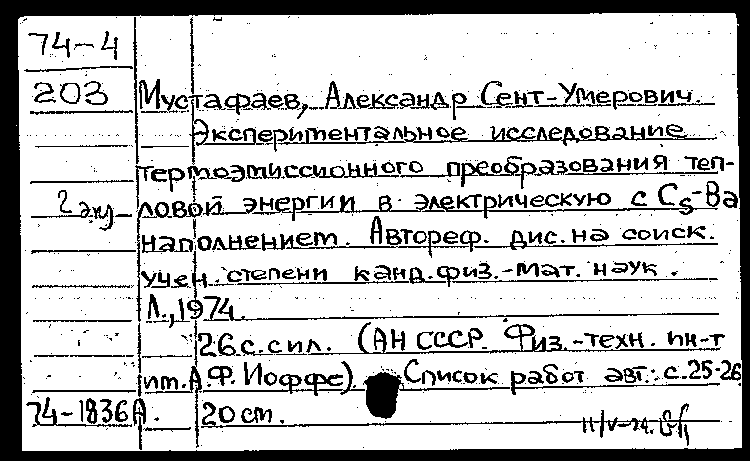 74-4
203 Мустафаев, Александр Сент-Умерович.
Экспериментальное исследование
термоэмиссионного преобразования теп-
2 экз ловой энергии в электрическую с Cs-Ba
наполнением. Автореф. дис. на соиск.
учен. степени канд. физ.-мат. наук.
Л., 1974.
26 с. с ил. (АН СССР. Физ.-техн. ин-т
им. А.Ф. Иоффе). Список работ авт.: с. 25-26
74-1836А. 20 см.